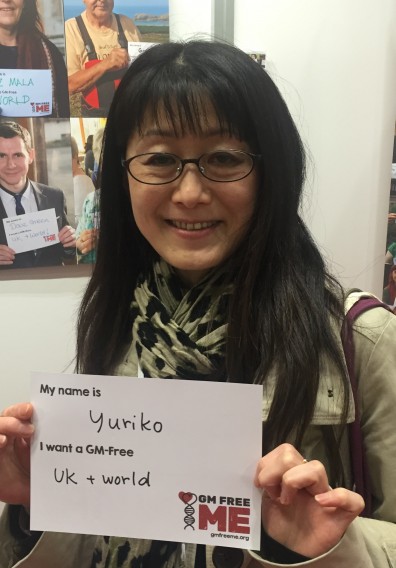 MALA
WORLD
ME
UK + WORLD
ME
My name is
Yuriko
I want a GM-Free
UK + world
GM FREE
ME
gmfreeme.org